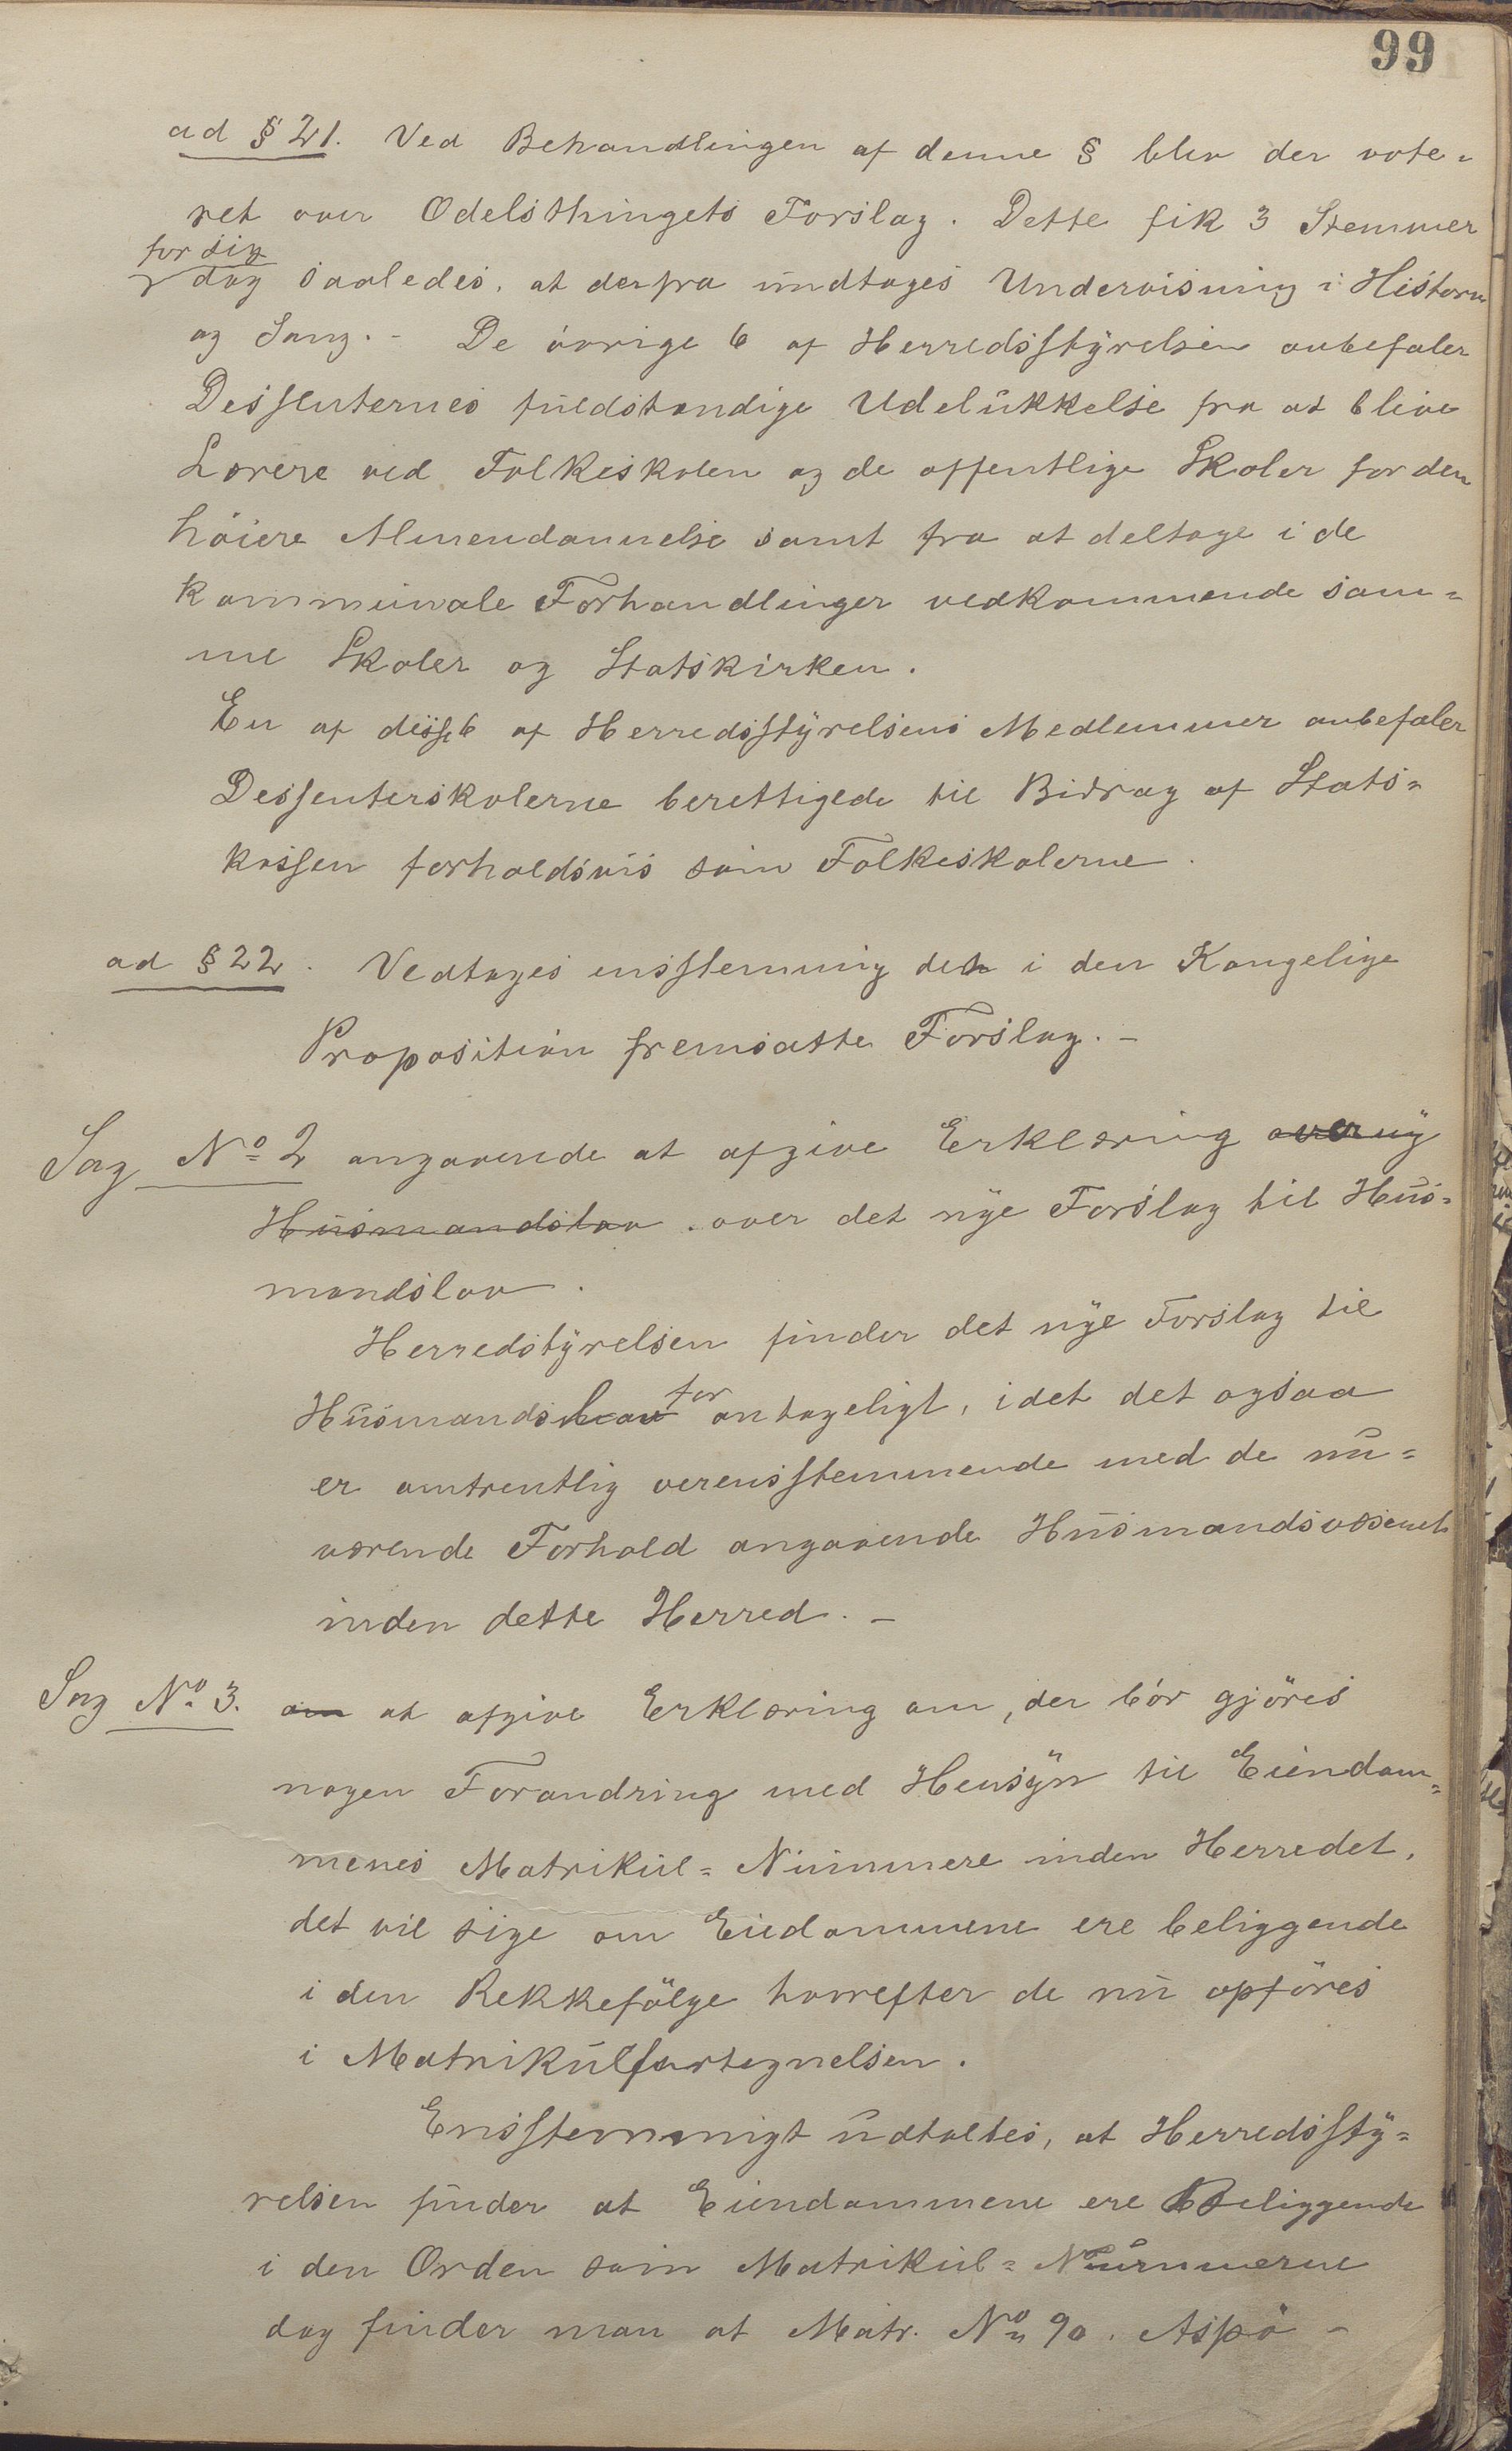 99
ad § 21. Ved Behandlingen af denne § blev der vote-
ret over Odelsthingets Forslag. Dette fik 3 Stemmer
for sig
dog saaledes, at derfra undtages Undervisning i Historie
og Sang. - De övrige 6 af Herredsstyrelsen anbefaler
Dessenternes fuldstændige Udelukkelse fra at blive
Lærere ved Folkeskolen og de offentlige Skoler for den
höiere Almendannelse samt fra at deltage i de
kommunale Forhandlinger vedkommende sam-
me Skoler og Statskirken.
En af disse 6 af Herredsstyrelsens Medlemmer anbefaler
Dessenterskolerne berettigede til Bidrag af Stats-
kassen forholdsvis som Folkeskolerne.
ad § 22. Vedtoges ensstemmig det i den Kongelige
Proposition fremsatte Forslag. -
Sag No 2 angaaende at afgive Erklæring over ny
Husmandslov. over det nye Forslag til Hus-
mandslov.
Herredstyrelsen finder det nye Forslag til
Husmandslov for antageligt, idet det ogsaa
er omtrentlig overensstemmende med de nu-
værende Forhold angaaende Husmandsvæsenet
inden dette Herred. -
Sag No 3. om at afgive Erklæring om, der bör gjöres
nogen Forandring med Hensyn til Eiendom-
menes Matrikul-Nummere inden Herredet,
det vil sige om Eiedommene ere beliggende
i den Rekkefölge hvorefter de nu opföres
i Matrikulfortegnelsen.
Ensstemmigt udtaltes, at Herredssty-
relsen finder at Eiendommene ere Beliggende
i den Orden som Matrikul-Nummerne
dog finder man at Matr. No 90. Aspö -